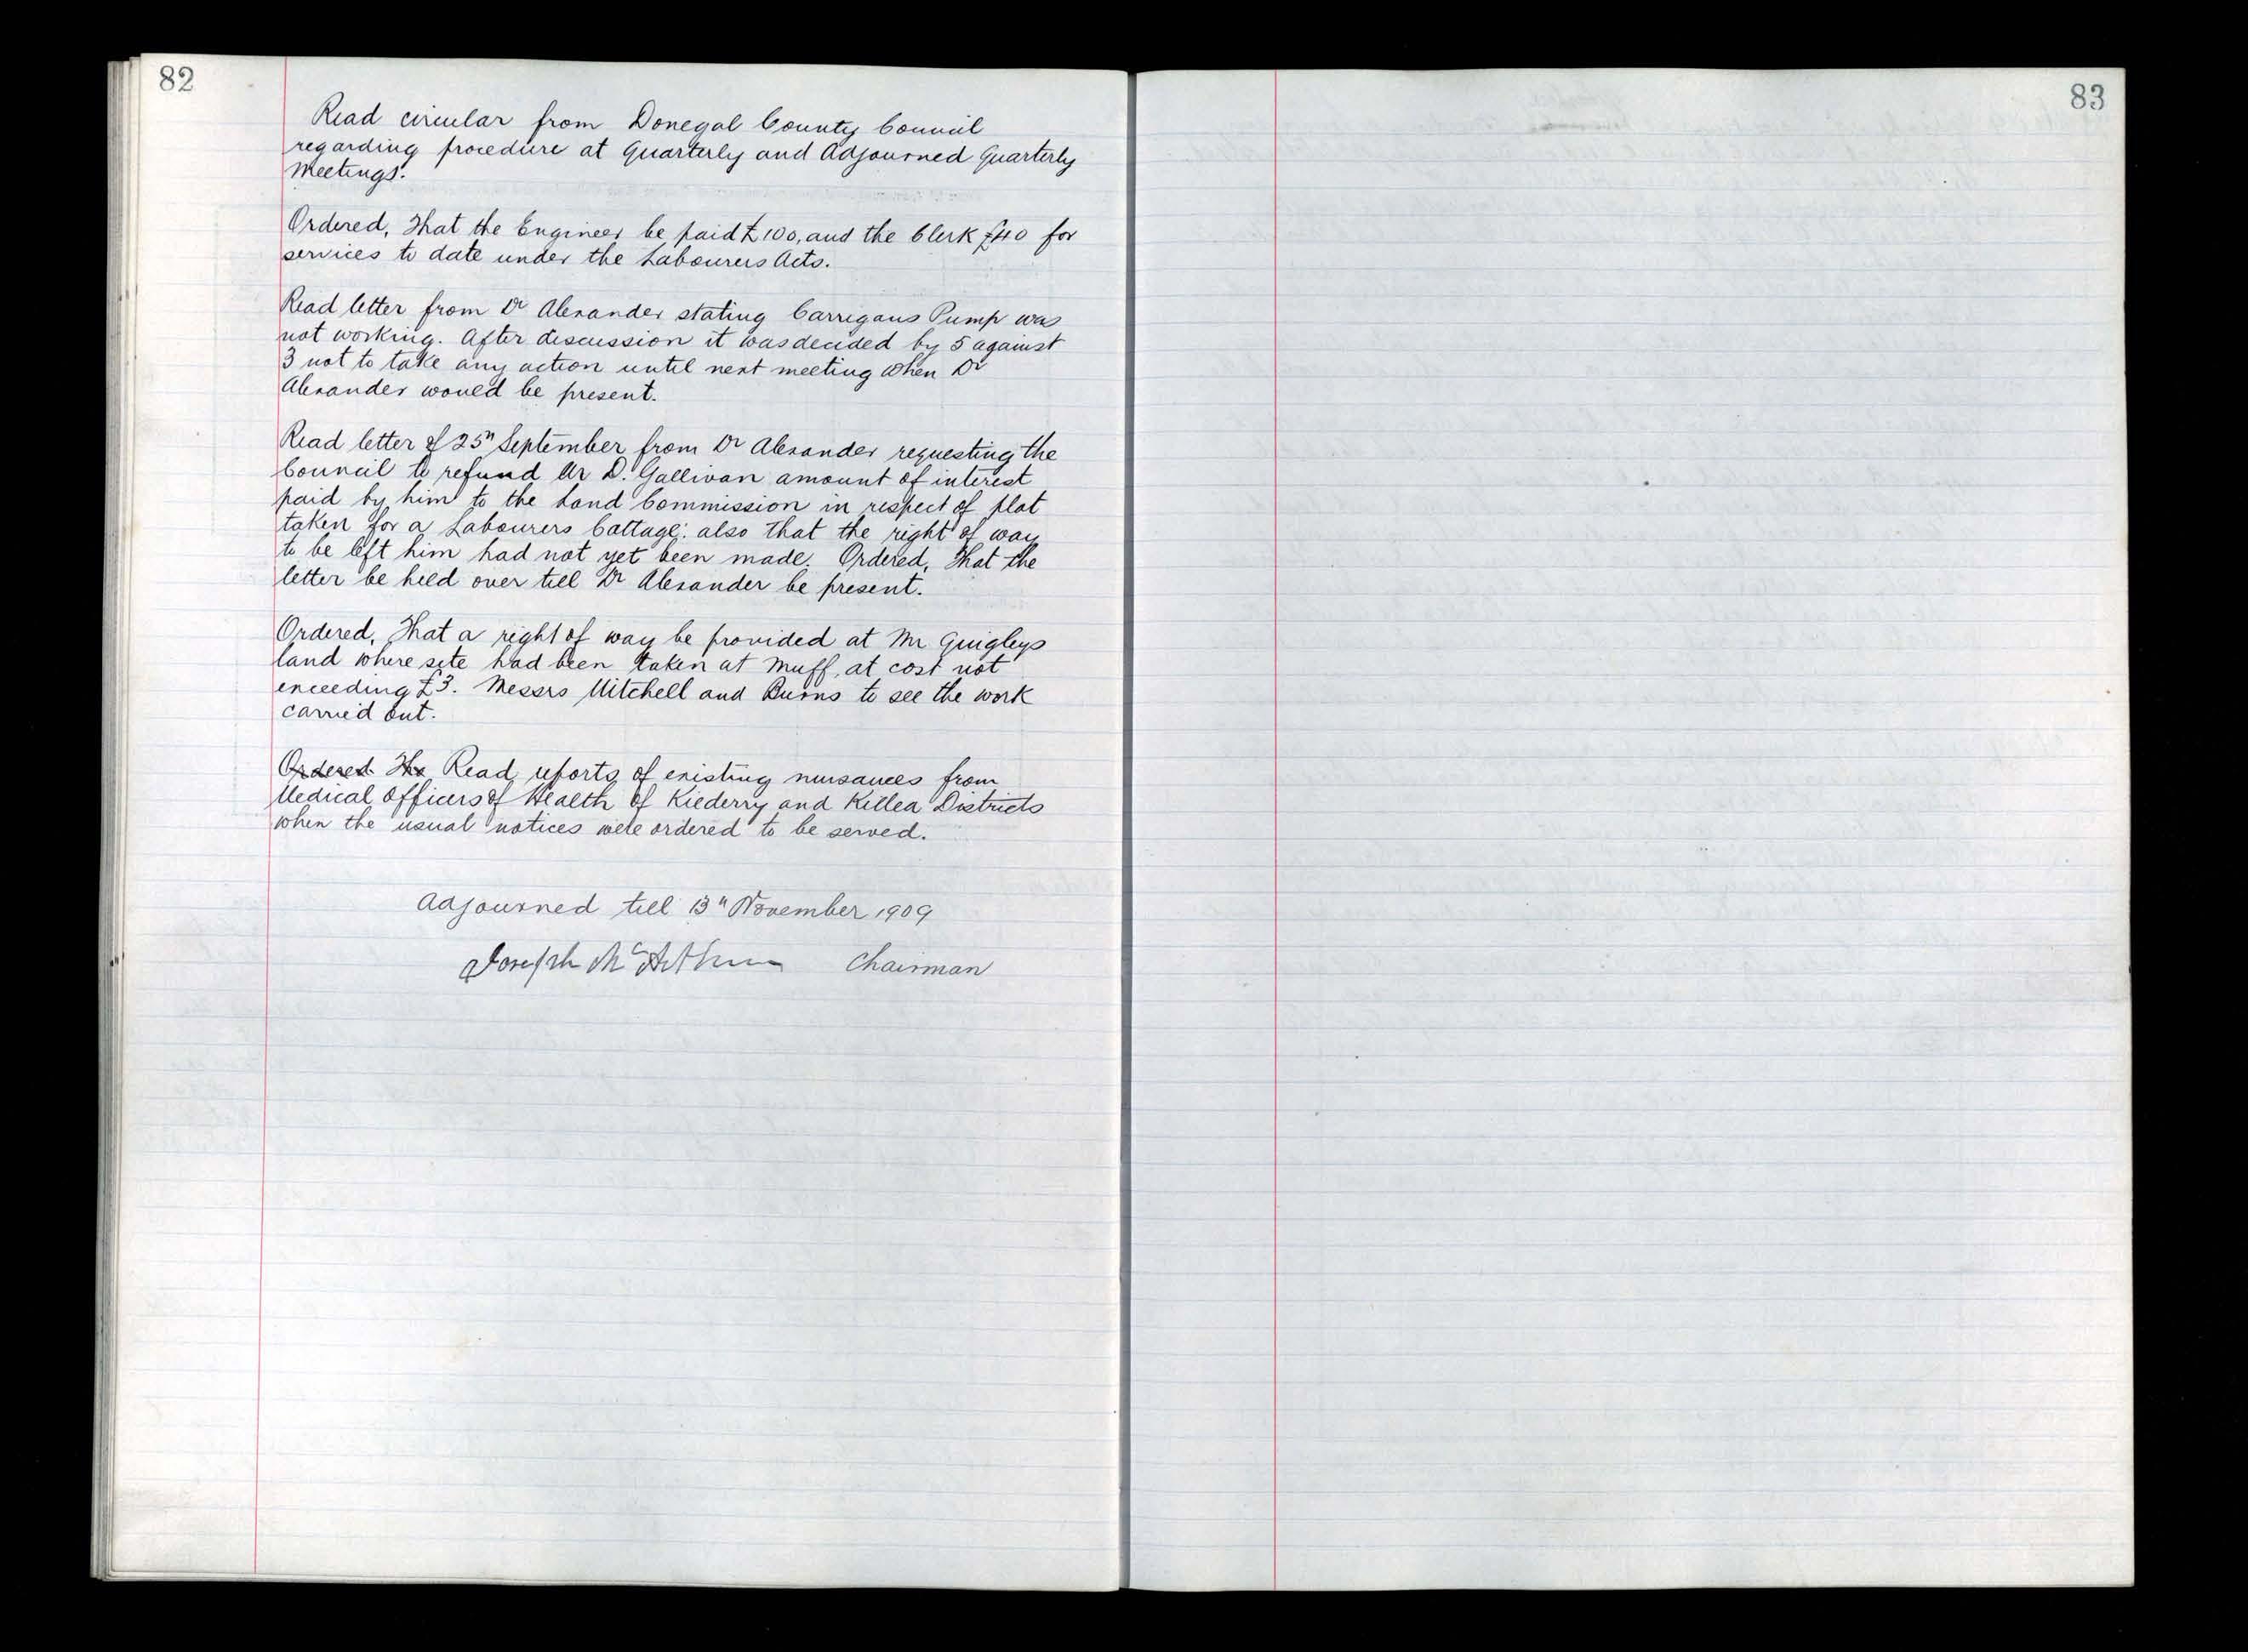 82
Read circular from Donegal County Council
regarding procedure at Quarterly and Adjourned Quarterly
Meetings.
Ordered, That the Engineer be paid £100, and the Clerk £40 for
services to date under the Labourers Acts.
Read letter from Dr Alexander stating Carrigans Pump was
not working. After discussion it was decided by 5 against
3 not to take any action until next meeting when Dr
Alexander would be present.
Read letter of 25th September from Dr Alexander requesting the
Council to refund Mr D. Gallivan amount of interest
paid by him to the Land Commission in respect of plot
taken for a Labourers Cottage: also that the right of way
to be left him had not yet been made. Ordered, That the
letter be held over till Dr Alexander be present.
Ordered, That a right of way be provided at Mr Quigleys
land where site had been taken at Muff, at cost not
exceeding £3. Messrs Mitchell and Burns to see the work
carried out.
Ordered Tha Read reports of existing nuisances from
Medical Officers of Health of Kilderry and Killea Districts
when the usual notices were ordered to be served.
Adjourned till 13th November 1909
Joseph McArthur Chairman
83